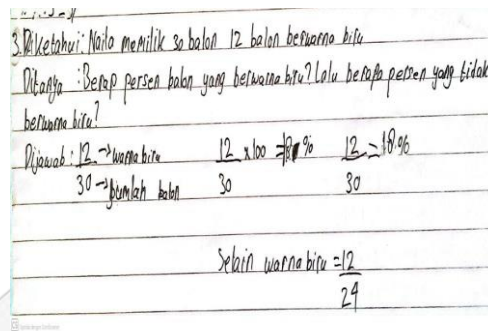 3. Diketahui: Naila memilik 30 balon 12 balon berwarna biru
Ditanya : Berap persen balon yang berwarna biru? Lalu berapa persen yang tidak
berwarna biru?
Dijawab : 12 → warna biru 12 x 100 = 18 % 12 = 18.%
30 → jumlah balon 30 30
Selain warna biru = 12
24